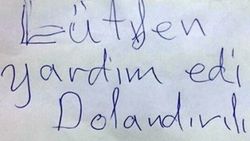 Lütfen
yardim edi
Dolandırılı